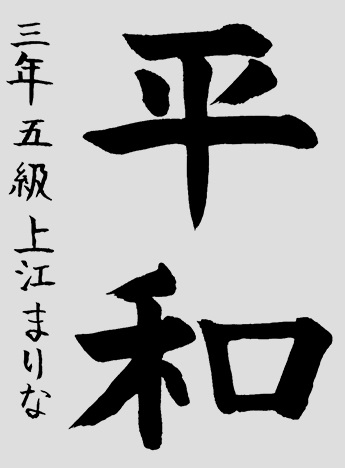 平和
三年五級上江まりな